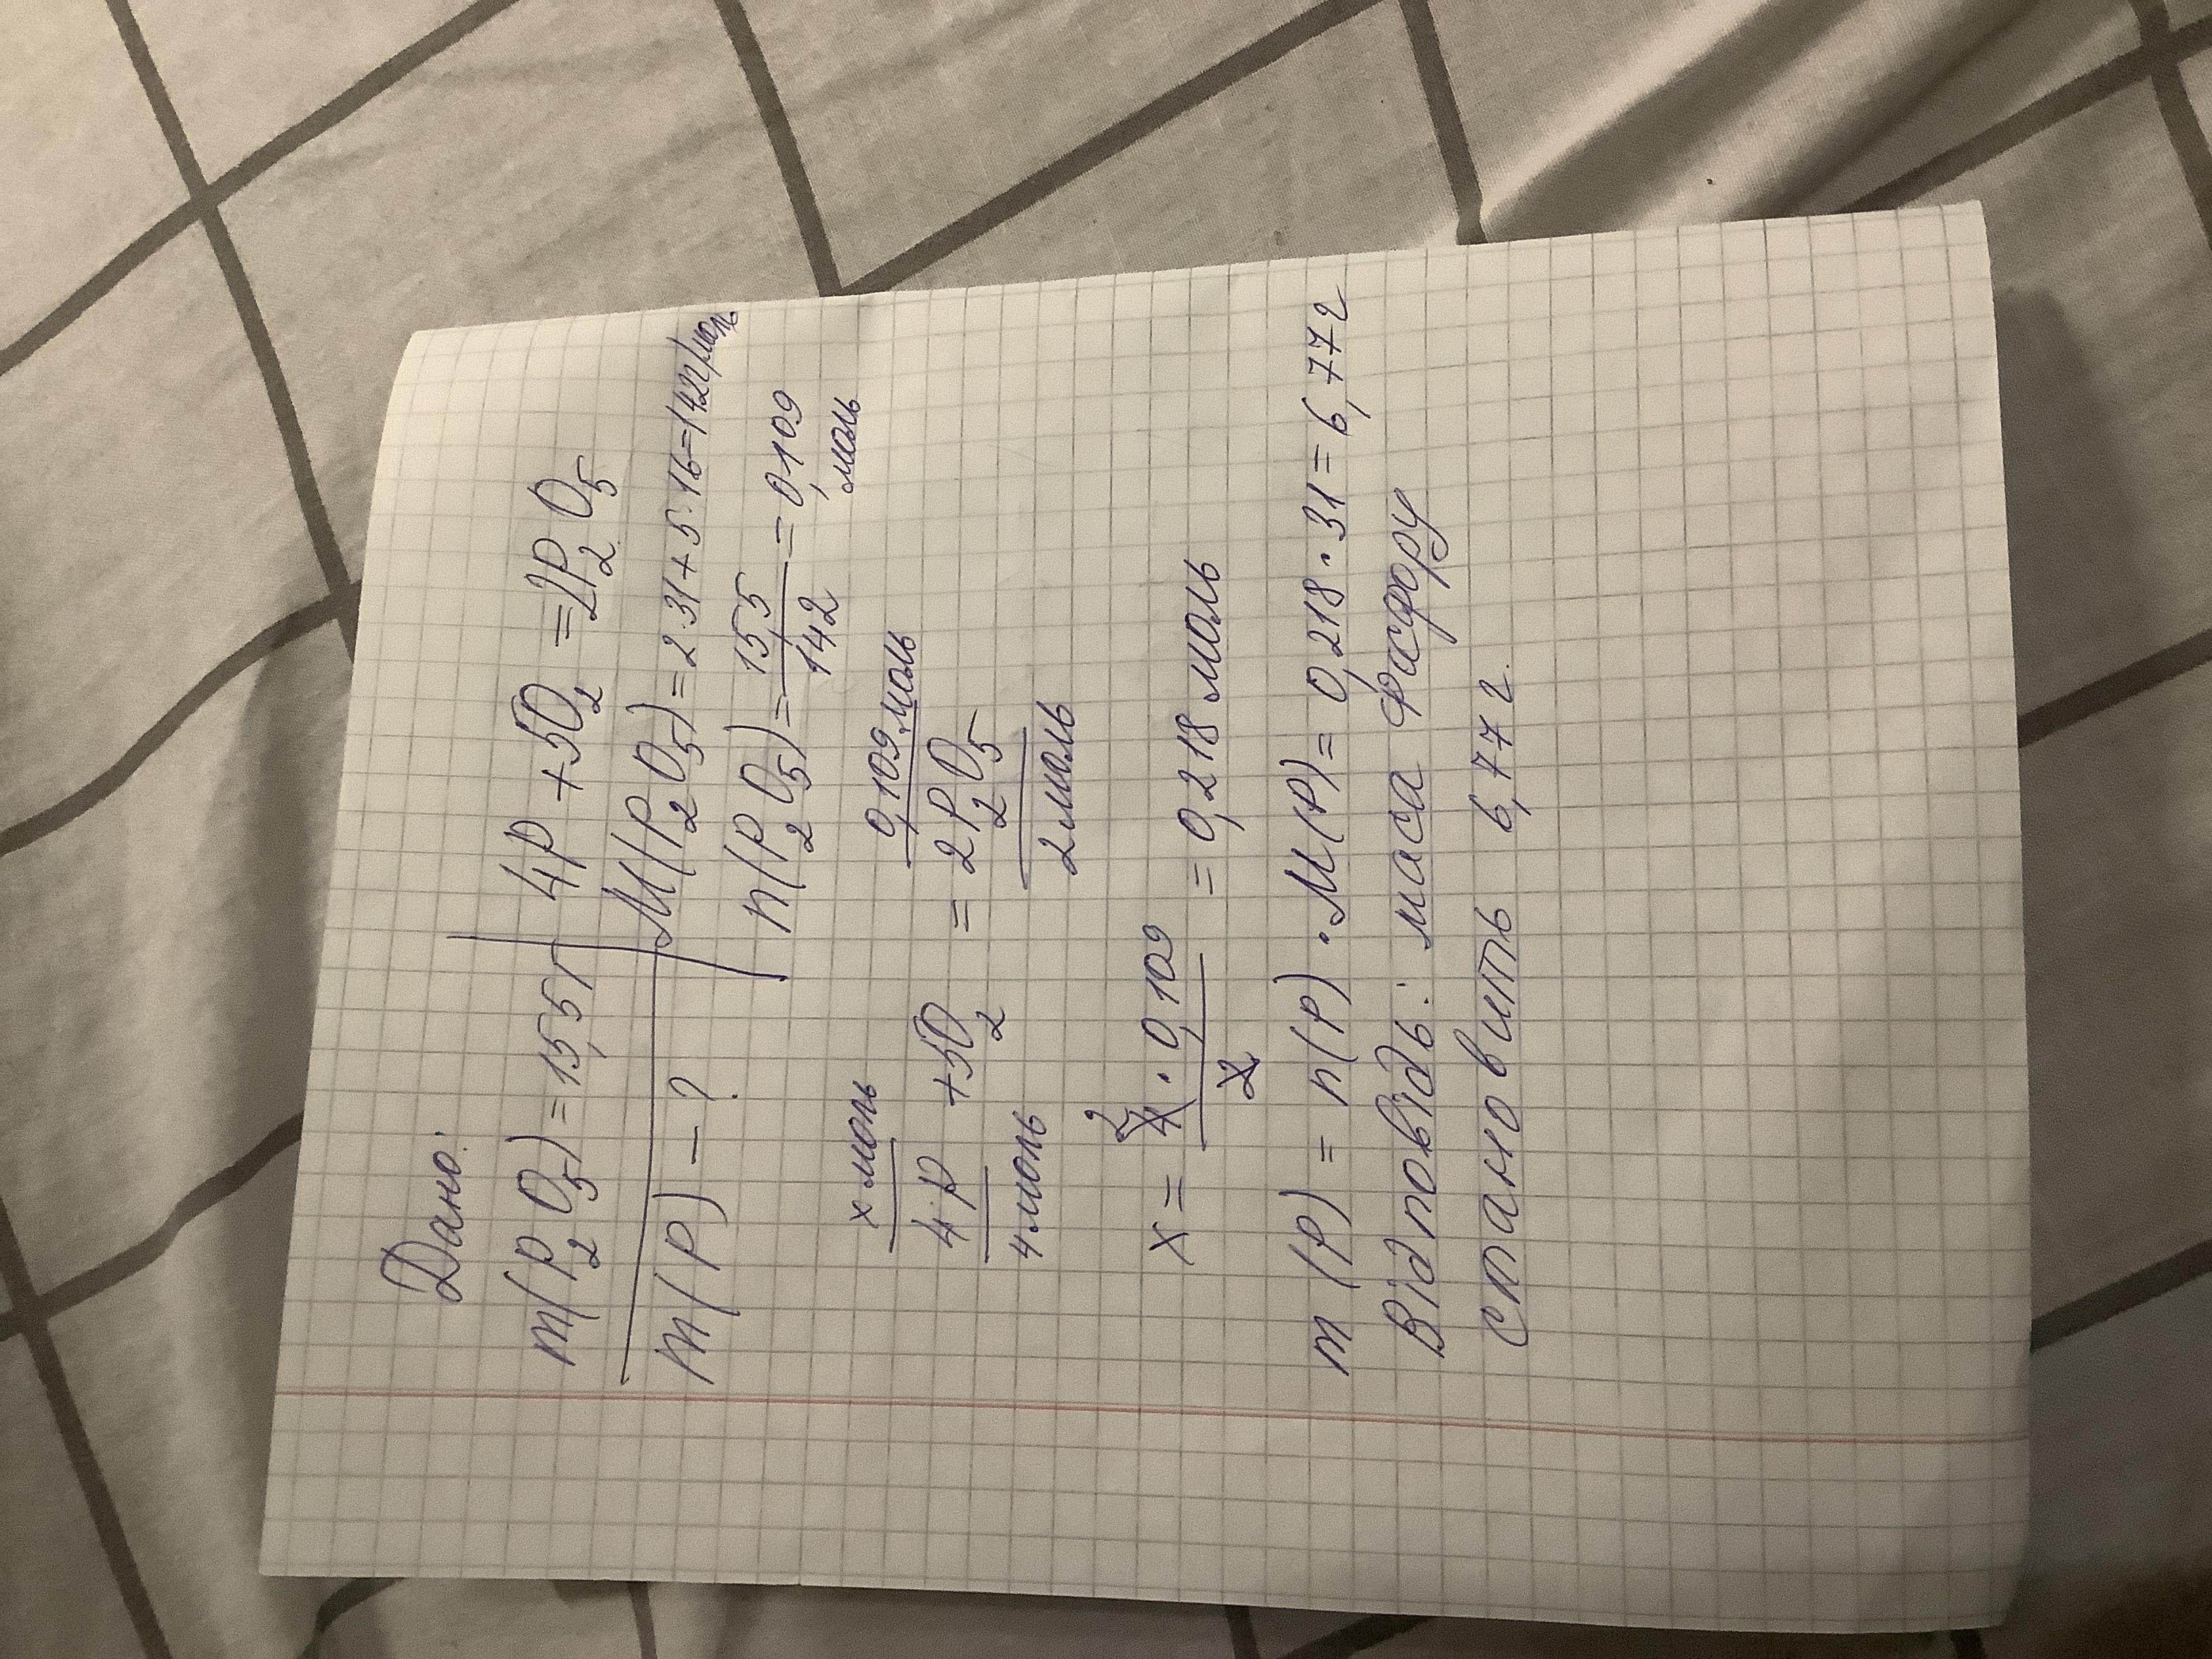 Дано:
m(P₂O₅) = 15,5г
m(P) - ?
4P + 5O₂ = 2P₂O₅
M(P₂O₅) = 2·31 + 5·16 = 142г/моль
n(P₂O₅) = 15,5/142 = 0,109 моль
x моль 0,109 моль
4P + 5O₂ = 2P₂O₅
4 моль 2 моль
x = 4 2 · 0,109 / 2 = 0,218 моль
m (P) = n(P) · M(P) = 0,218 · 31 = 6,77 г
Відповідь: маса Фосфору
становить 6,77 г.